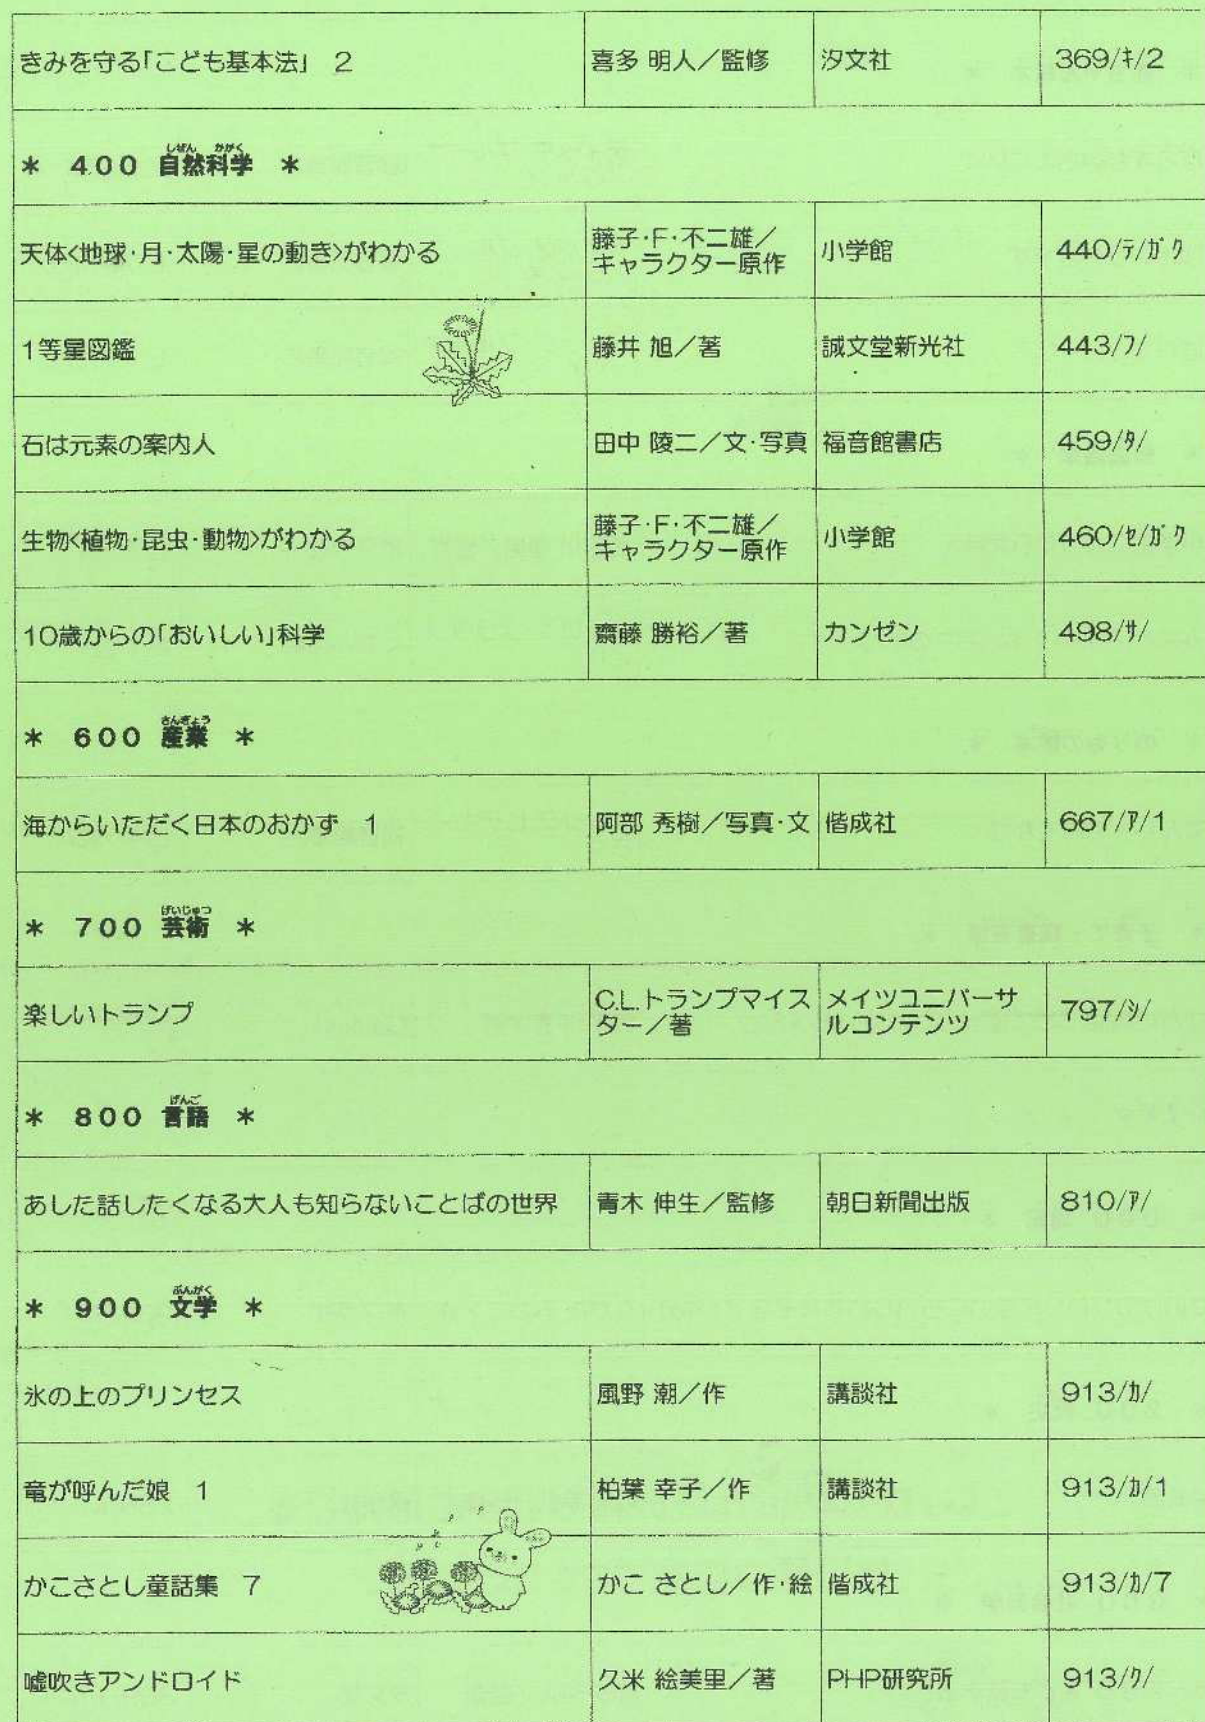 きみを守る「こども基本法」 2 喜多 明人／監修 汐文社 369/ｷ/2
しぜん かがく
＊ 400 自然科学 ＊
天体<地球・月・太陽・星の動き>がわかる 藤子・F・不二雄／キャラクター原作 小学館 440/ﾃ/ｶﾞｸ
1等星図鑑 藤井 旭／著 誠文堂新光社 443/ﾌ/
石は元素の案内人 田中 陵二／文・写真 福音館書店 459/ﾀ/
生物<植物・昆虫・動物>がわかる 藤子・F・不二雄／キャラクター原作 小学館 460/ｾ/ｶﾞｸ
10歳からの「おいしい」科学 齋藤 勝裕／著 カンゼン 498/ｻ/
さんぎょう
＊ 600 産業 ＊
海からいただく日本のおかず 1 阿部 秀樹／写真・文 偕成社 667/ｱ/1
げいじゅつ
＊ 700 芸術 ＊
楽しいトランプ C.L.トランプマイスター／著 メイツユニバーサルコンテンツ 797/ｼ/
げんご
＊ 800 言語 ＊
あした話したくなる大人も知らないことばの世界 青木 伸生／監修 朝日新聞出版 810/ｱ/
ぶんがく
＊ 900 文学 ＊
氷の上のプリンセス 風野 潮／作 講談社 913/ｶ/
竜が呼んだ娘 1 柏葉 幸子／作 講談社 913/ｶ/1
かこさとし童話集 7 かこ さとし／作・絵 偕成社 913/ｶ/7
嘘吹きアンドロイド 久米 絵美里／著 PHP研究所 913/ｸ/